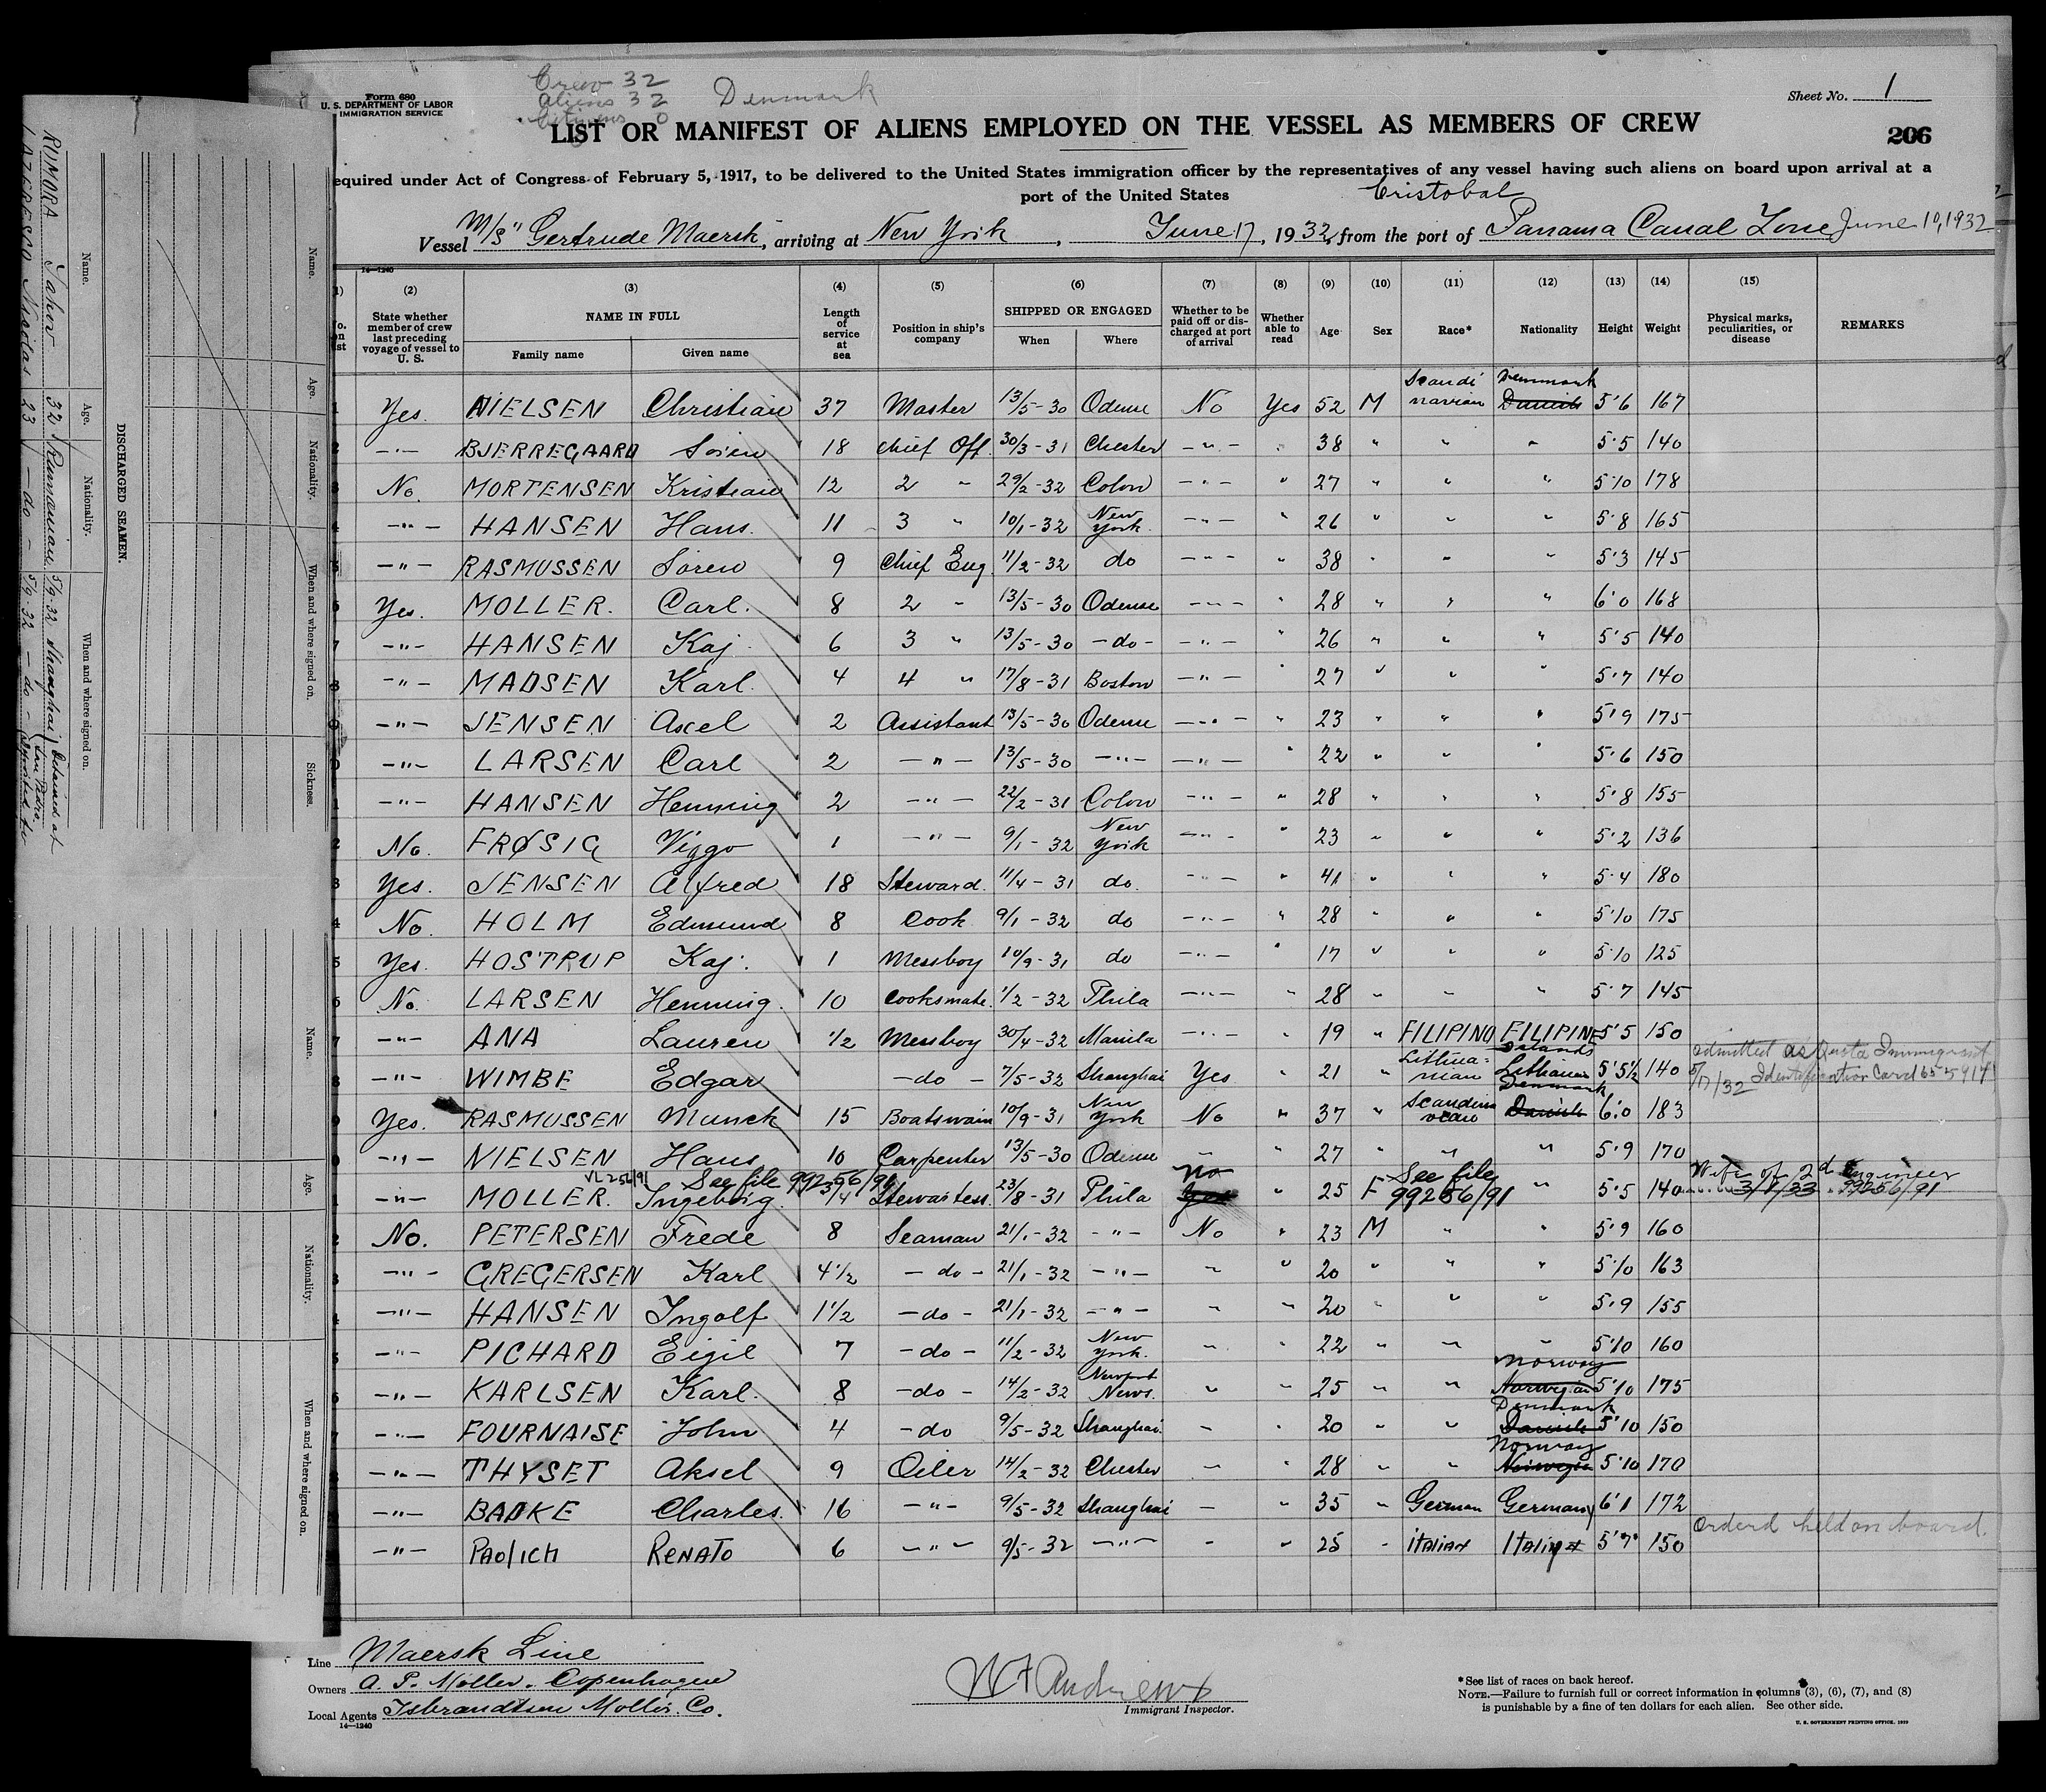 Form 680
U. S. DEPARTMENT OF LABOR
IMMIGRATION SERVICE
Crew 32
Aliens 32
Citizens 0
Denmark
Sheet No. 1
LIST OR MANIFEST OF ALIENS EMPLOYED ON THE VESSEL AS MEMBERS OF CREW
206
equired under Act of Congress of February 5, 1917, to be delivered to the United States immigration officer by the representatives of any vessel having such aliens on board upon arrival at a
port of the United States
Cristobal
Vessel M/S "Gertrude Maersk, arriving at New York, June 17, 1932, from the port of Panama Canal Zone June 10, 1932
14—1240
(2) (3) (4) (5) (6) (7) (8) (9) (10) (11) (12) (13) (14) (15)
State whether member of crew last preceding voyage of vessel to U. S.
NAME IN FULL
Family name
Given name
Length of service at sea
Position in ship's company
SHIPPED OR ENGAGED
When
Where
Whether to be paid off or discharged at port of arrival
Whether able to read
Age
Sex
Race*
Nationality
Height
Weight
Physical marks, peculiarities, or disease
REMARKS
Yes. NIELSEN Christian 37 Master 13/5-30 Odense No Yes 52 M Scandinavian Denmark Danish 5'6 167
—"— BJERREGAARD Sören 18 Chief Off. 30/3-31 Chester —"— " 38 " " " 5'5 140
No. MORTENSEN Kristian 12 2 " 29/2-32 Colon —"— " 27 " " " 5'10 178
—"— HANSEN Hans. 11 3 " 10/1-32 New York. —"— " 26 " " " 5'8 165
—"— RASMUSSEN Sören 9 Chief Eng. 11/2-32 do —"— " 38 " " " 5'3 145
Yes. MOLLER. Carl. 8 2 " 13/5-30 Odense —"— " 28 " " " 6'0 168
—"— HANSEN Kaj 6 3 " 13/5-30 —do— —"— " 26 " " " 5'5 140
—"— MADSEN Karl. 4 4 " 17/8-31 Boston —"— " 27 " " " 5'7 140
—"— JENSEN Axel 2 Assistant 13/5-30 Odense —"— " 23 " " " 5'9 175
—"— LARSEN Carl 2 —"— 13/5-30 —"— —"— " 22 " " " 5'6 150
—"— HANSEN Henning 2 —"— 22/2-31 Colon —"— " 28 " " " 5'8 155
No. FRØSIG Viggo 1 —"— 9/1-32 New York —"— " 23 " " " 5'2 136
Yes. JENSEN Alfred 18 Steward. 11/4-31 do. —"— " 41 " " " 5'4 180
No. HOLM Edmund 8 Cook 9/1-32 do —"— " 28 " " " 5'10 175
Yes. HOSTRUP Kaj. 1 Messboy 10/9-31 do —"— " 17 " " " 5'10 125
No. LARSEN Henning. 10 Cooksmate. 1/2-32 Phila —"— " 28 " " " 5'7 145
—"— ANA Lauren 1/2 Messboy 30/4-32 Manila —"— " 19 " FILIPINO FILIPINE Islands 5'5 150
—"— WIMBE Edgar —do— 7/5-32 Shanghai Yes " 21 " Lithuanian Lithuania 5'5½ 140 admitted as Quota Immigrant
Yes. RASMUSSEN Munck 15 Boatswain 10/9-31 New York No " 37 " Scandinavian Denmark Danish 6'0 183
—"— NIELSEN Hans 10 Carpenter 13/5-30 Odense " " 27 " " " 5'9 170
VL 256/91 See file 99256/91
—"— MOLLER. Ingeborg. 3/4 Stewartess. 23/8-31 Phila No Yes " 25 F See file 99256/91 " 5'5 140 Wife of 2d Engineer 99256/91
No. PETERSEN Frede 8 Seaman 21/1-32 —"— No " 23 M " " 5'9 160
—"— GREGERSEN Karl 4½ —do— 21/1-32 —"— " " 20 " " " 5'10 163
—"— HANSEN Ingolf 1½ —do— 21/1-32 —"— " " 20 " " " 5'9 155
—"— PICHARD Eigil 7 —do— 11/2-32 New York. " " 22 " " " 5'10 160
—"— KARLSEN Karl. 8 —do— 14/2-32 Newport News. " " 25 " " Norway Norwegian 5'10 175
—"— FOURNAISE John 4 —do 9/5-32 Shanghai. " " 20 " " Denmark Danish 5'10 150
—"— THYSET Aksel 9 Oiler 14/2-32 Chester " " 28 " " Norway Norwegian 5'10 170
—"— BADKE Charles. 16 —"— 9/5-32 Shanghai — " 35 " German Germany 6'1 172
—"— PAOlICH RENATO 6 —"— 9/5-32 —"— " " 25 " iTALiAN ITAliy 5'7" 150 Orderd held on board.
Line Maersk Line
Owners A. P. Möller. Copenhagen
Local Agents Isbrandtsen Moller. Co.
14—1240
W F Andrews
Immigrant Inspector.
*See list of races on back hereof.
NOTE.—Failure to furnish full or correct information in columns (3), (6), (7), and (8)
is punishable by a fine of ten dollars for each alien. See other side.
U. S. GOVERNMENT PRINTING OFFICE
DISCHARGED SEAMEN.
Name. Age. Nationality. When and where signed on.
RUMORA Jakov 32 5/9 32 Shanghai
Nicolas 23 —do— 5/9-32 —do—
Name. Age. Nationality. When and where signed on. Sickness.
Name. Age. Nationality. When and where signed on.